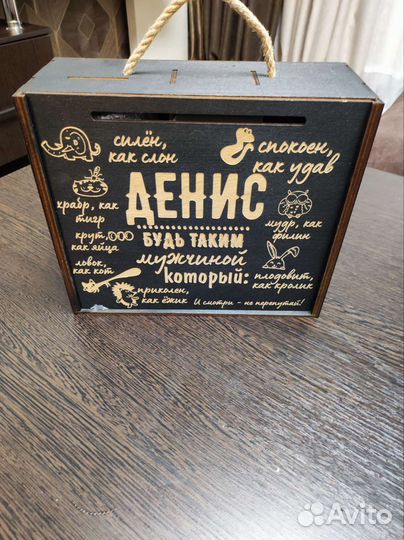 силён,
как слон
спокоен,
как удав
храбр, как
тигр
ДЕНИС
мудр, как
филин
крут,
как яйца
БУДЬ ТАКИМ
мужчиной
который:
ловок,
как кот
плодовит,
как кролик
приколен,
как ёжик
И смотри - не перепутай!
Avito